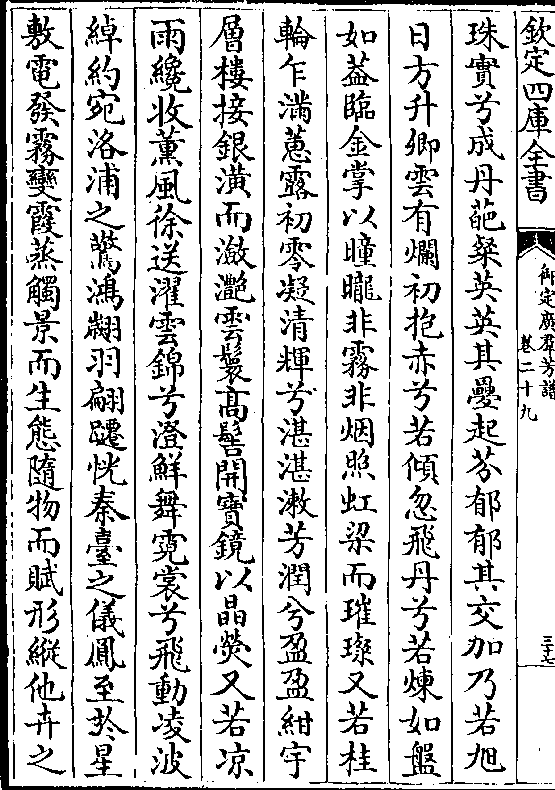 欽定四庫全書
御定廣群芳譜
卷二十九
三十七
珠實兮成丹葩粲英英其疊起芬郁郁其交加乃若旭
日方升卿雲有爛初抱赤兮若傾忽飛丹兮若煉如盤
如葢臨金掌以曈曨非霧非烟照虹梁而璀璨又若桂
輪乍滿蔥露初零凝清輝兮湛湛漱芳潤兮盈盈紺宇
層樓接銀潢而瀲灔雲鬟高髻開寶鏡以晶熒又若凉
雨纔收薰風徐送濯雲錦兮澄鮮舞霓裳兮飛動凌波
綽約宛洛浦之驚鴻翽羽翩躚恍秦臺之儀鳳至於星
敷電發霧變霞蒸觸景而生態隨物而賦形縱他卉之